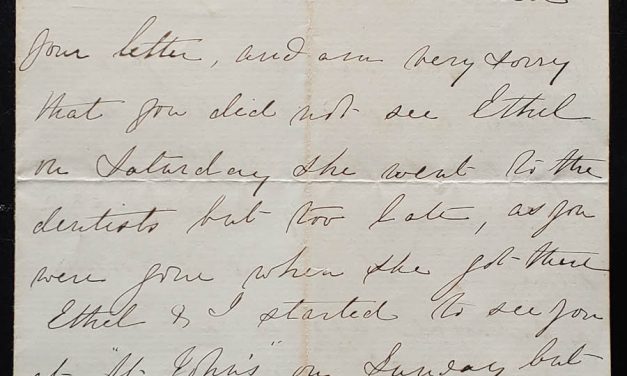 your letter, and am very sorry
that you did not see Ethel
on Saturday she went to the
dentists but too late, as you
were gone when she got there
Ethel & I started to see you
at "St John's" on Sunday but